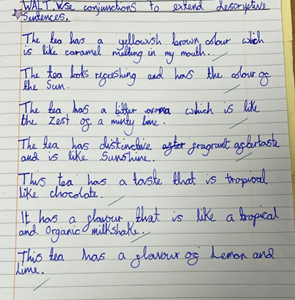 WALT. Use conjunctions to extend descriptive
sentences.
The tea has a yellowish brown colour which
is like caramel melting in my mouth.
The tea looks refreshing and has the colour of
the Sun.
The tea has a bitter aroma which is like
the zest of a minty lime.
The tea has distinctive after fragrant aftertaste
and is like Sunshine.
This tea has a taste that is tropical
like chocolate.
It has a flavour that is like a tropical
and Organic milkshake.
This tea has a flavour of Lemon and
Lime.